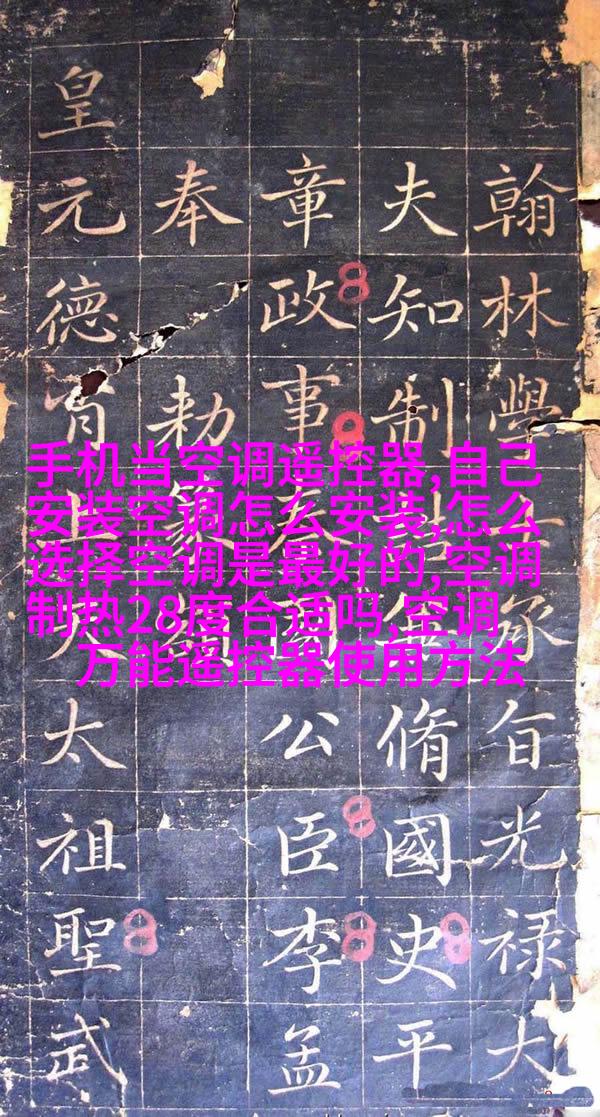 手机当空调遥控器,自己
安装空调怎么安装,怎么
选择空调是最好的,空调
制热28度合适吗,空调
万能遥控器使用方法
翰林學士承旨光祿大
夫知制誥兼脩國史平
章政事秦國公臣李孟
奉勅篆
皇元德上天太祖聖武